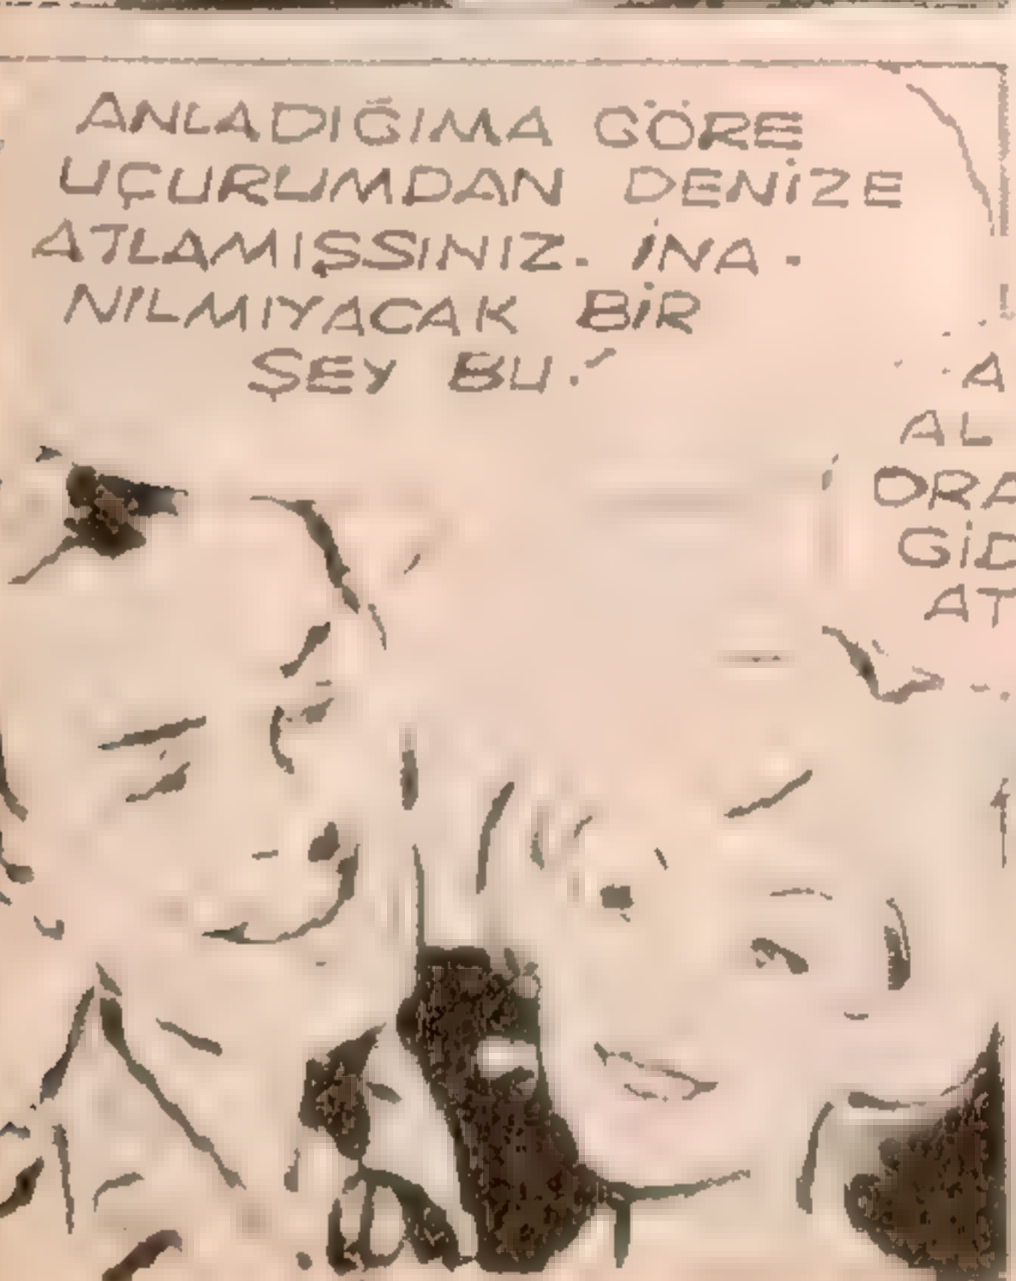 ANLADIĞIMA GÖRE
UÇURUMDAN DENİZE
ATLAMIŞSINIZ. İNA-
NILMIYACAK BİR
ŞEY BU!
A
AL
ORA
GİD
AT